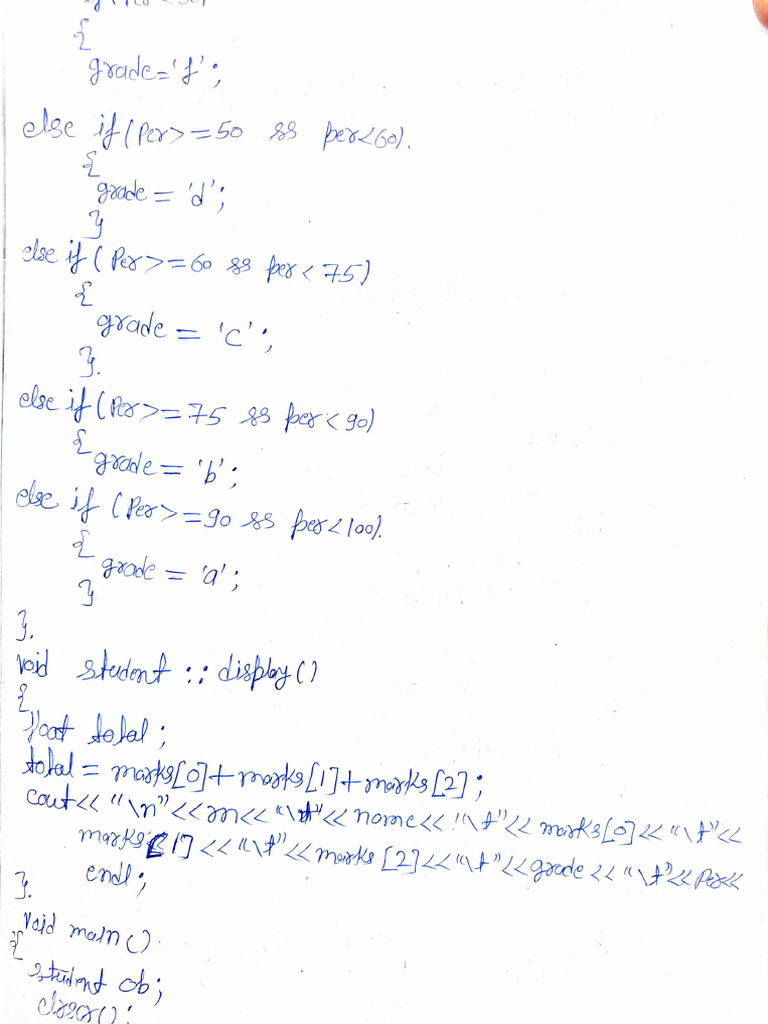 {
grade='f';
else if(Per>=50 ss per<60).
{
grade = 'd';
}
else if( Per>=60 ss per<75)
{
grade = 'c';
}.
else if(Per>=75 ss per<90)
{
grade = 'b';
else if (Per>=90 ss per<100).
{
grade = 'a';
}
}.
void student :: display()
{
float total;
total = marks[0]+marks[1]+marks[2];
cout<<"\n"<<rn<<"\t"<<name<<"\t"<<marks[0]<<"\t"<<
marks[1]<<"\t"<<marks[2]<<"\t"<<grade<<"\t"<<Per<<
endl;
}.
void main()
{
student ob;
clrscr();